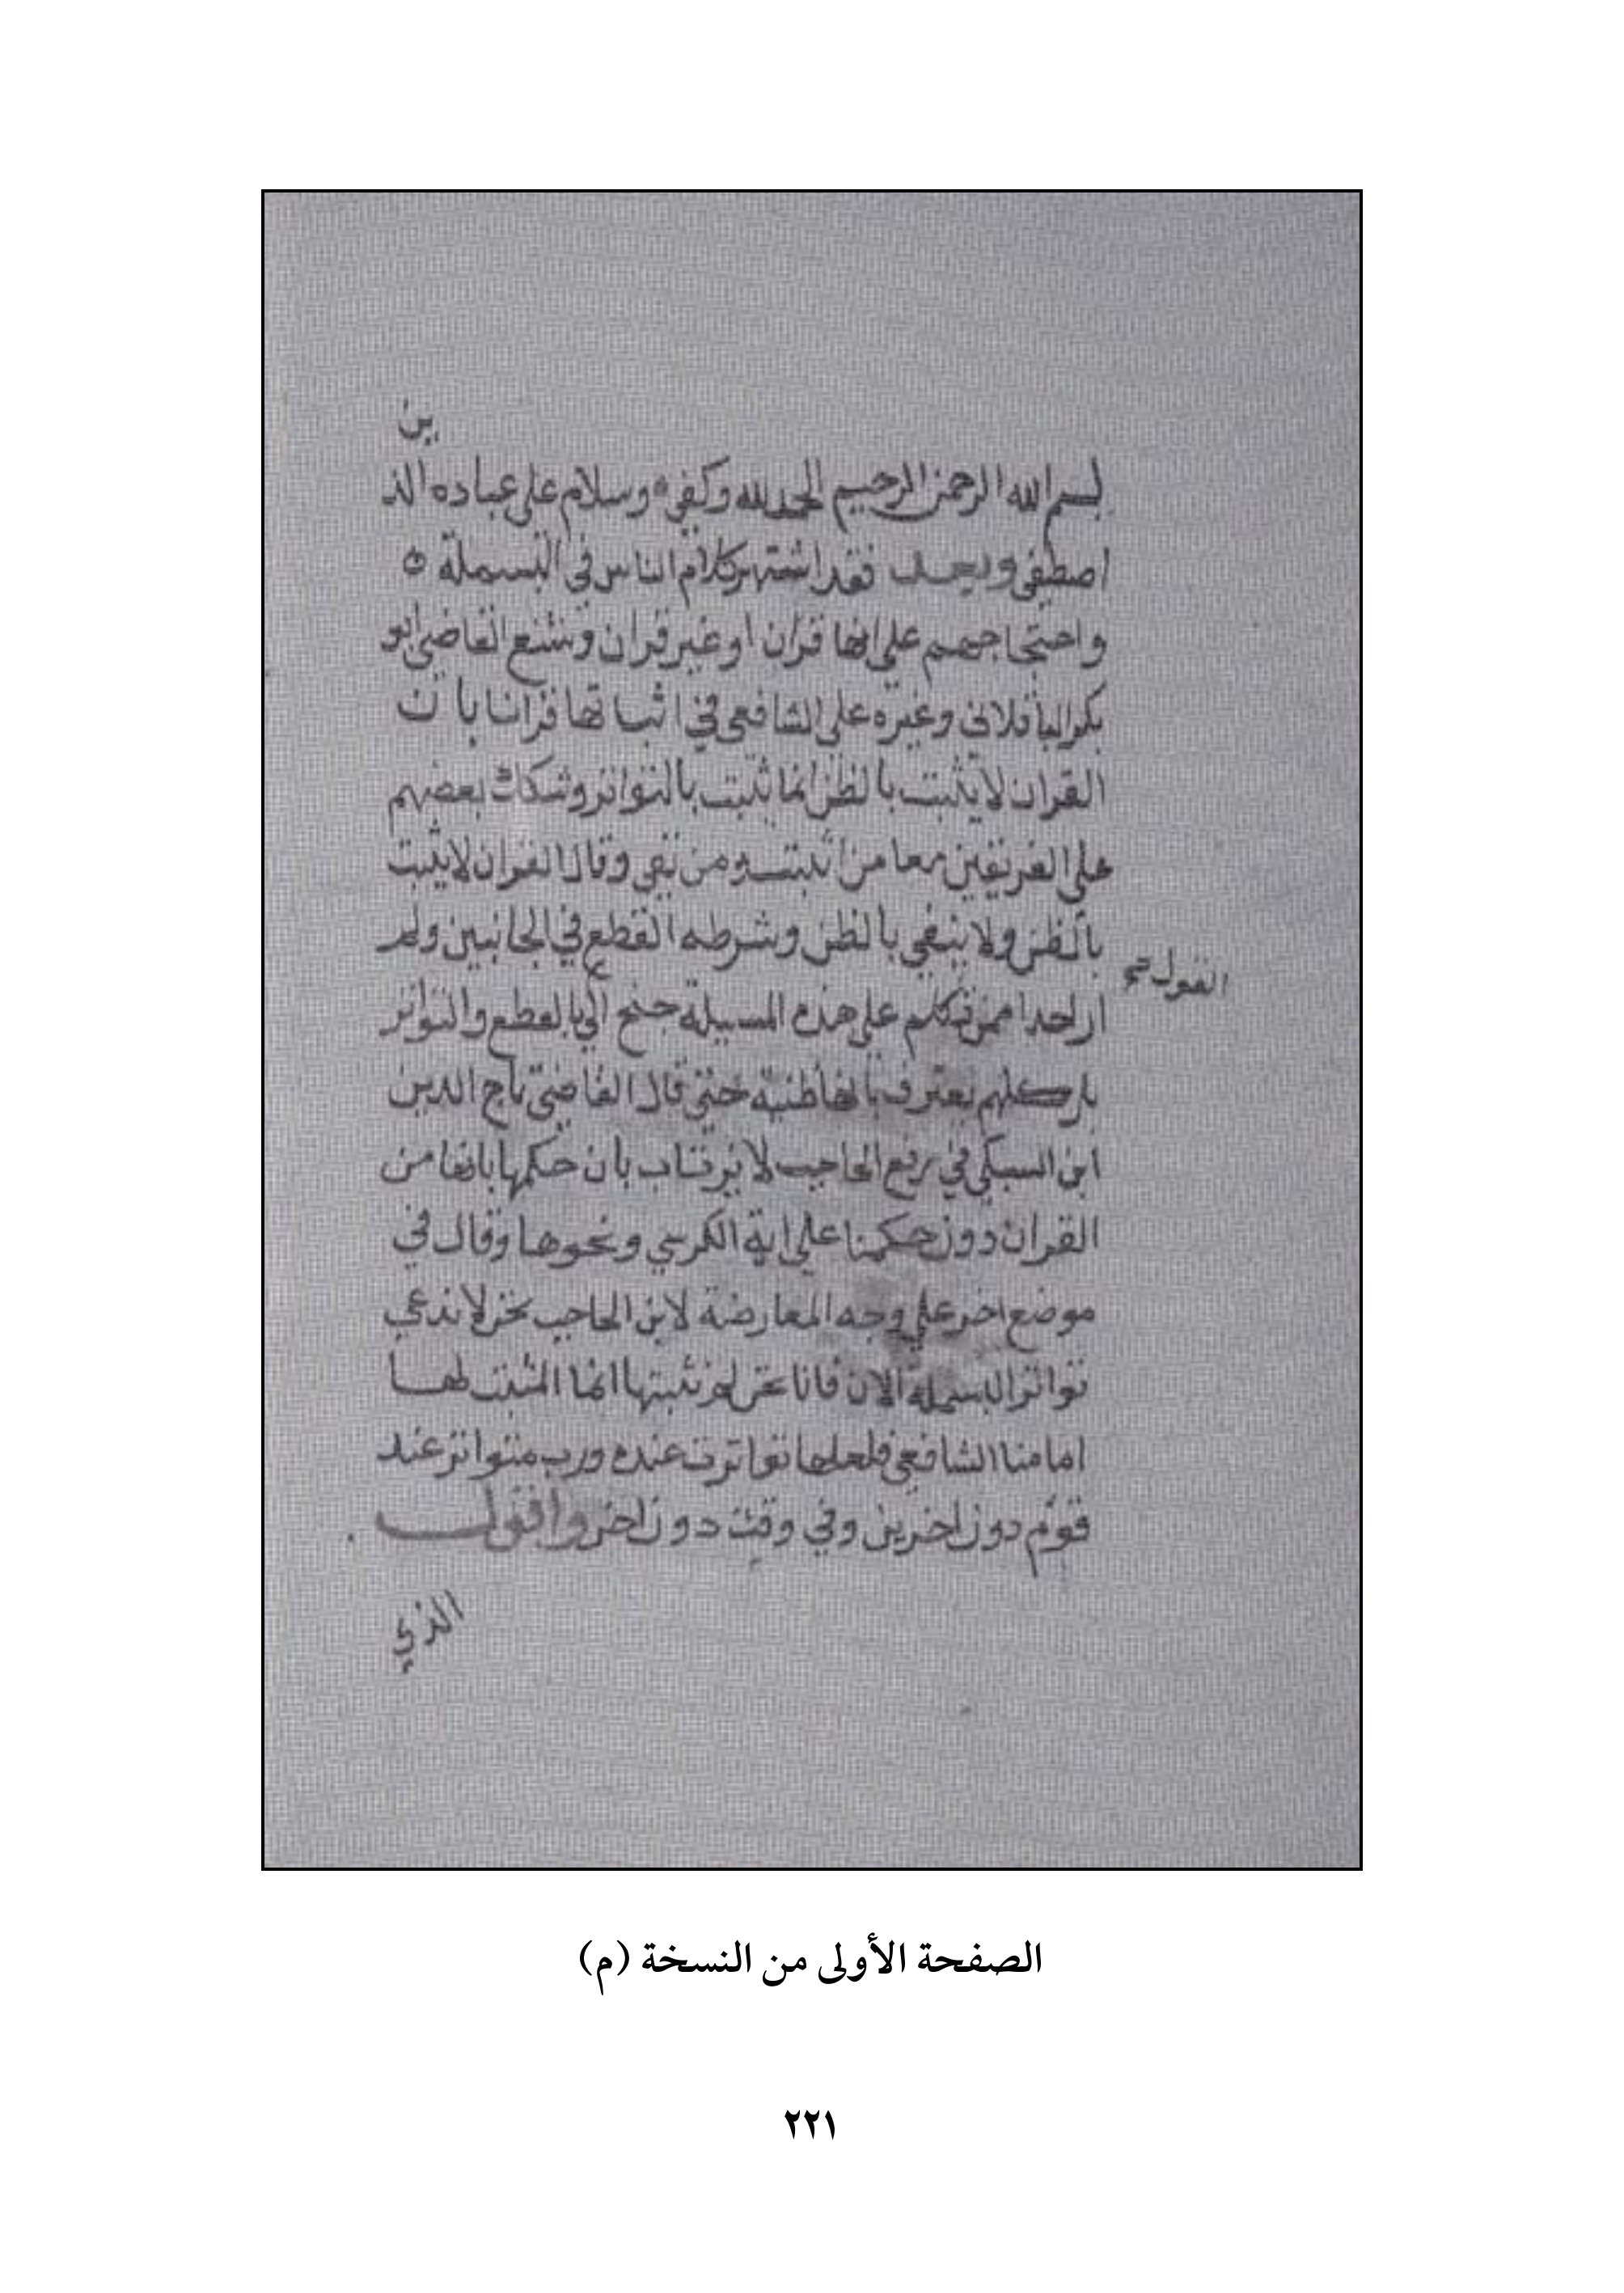 ين
بسم الله الرحمن الرحيم الحمد لله وكفى وسلام على عباده الذ
اصطفى وبعد فقد اشتهر كلام الناس في البسملة ٥
واحتجاجهم على انها قران او غير قران وشنع القاضي ابو
بكر الباقلاني وغيره على الشافعي في اثباتها قرانا بان
القران لا يثبت بالظن انما يثبت بالتواتر وشكك بعضهم
على الفريقين معا من اثبت ومن نفي وقال القران لا يثبت
بالظن ولا ينفي بالظن وشرطه القطع في الجانبين ولم
القول صح
ار احدا ممن تكلم على هذه المسيلة جنح الي بالقطع والتواتر
بل كلهم يعترف بانها ظنية حتى قال القاضي تاج الدين
ابن السبكي في رفع الحاجب لا نرتاب بان حكمها بانها من
القران دون حكمنا على اية الكرسي ونحوها وقال في
موضع اخر على وجه المعارضة لابن الحاجب نحن لا ندعي
تواتر البسملة الان فانا نحن لم نثبتها انما المثبت لها
امامنا الشافعي فلعلها تواترت عنده ورب متواتر عند
قوم دون اخرين وفي وقت دون اخر واقول
الذي
الصفحة الأولى من النسخة (م)
٢٢١